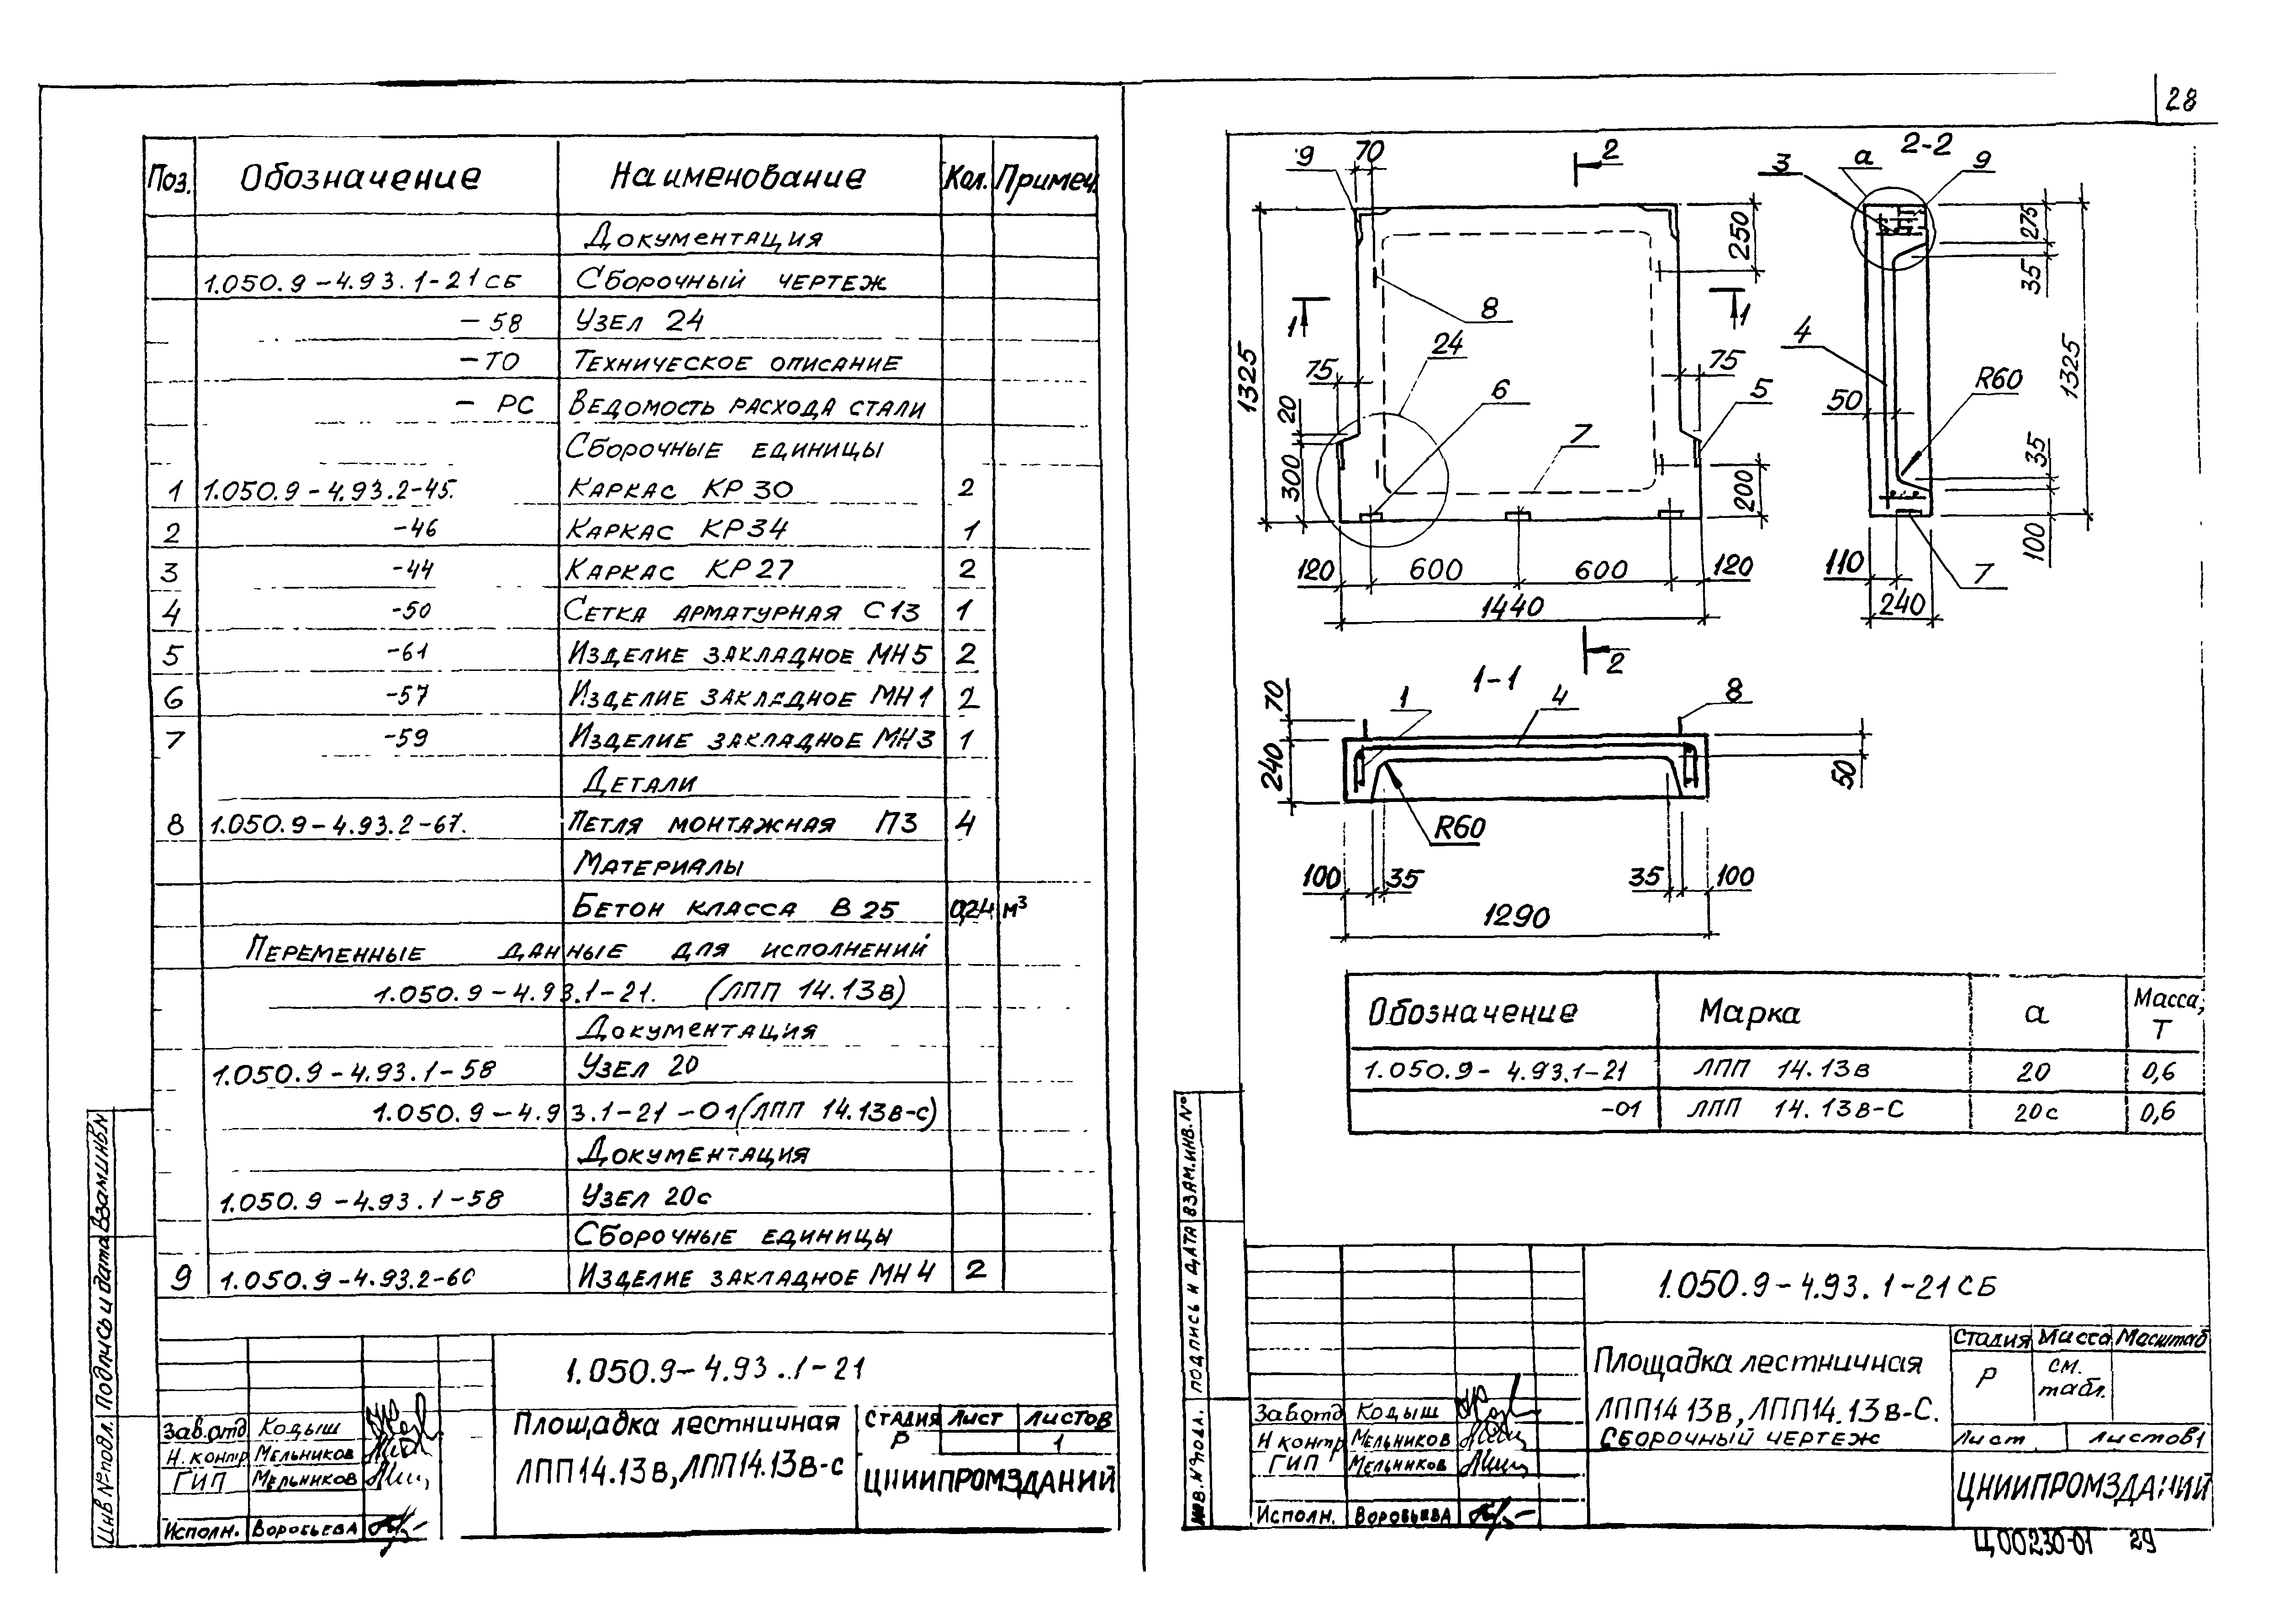 28
Поз. Обозначение Наименование Кол. Примеч.
Документация
1.050.9-4.93.1-21СБ Сборочный чертеж
-58 Узел 24
-ТО Техническое описание
- РС Ведомость расхода стали
Сборочные единицы
1 1.050.9-4.93.2-45. Каркас КР30 2
2 -46 Каркас КР34 1
3 -44 Каркас КР27 2
4 -50 Сетка арматурная С13 1
5 -61 Изделие закладное МН5 2
6 -57 Изделие закладное МН1 2
7 -59 Изделие закладное МН3 1
Детали
8 1.050.9-4.93.2-67. Петля монтажная П3 4
Материалы
Бетон класса В25 0,24 м³
Переменные данные для исполнений
1.050.9-4.93.1-21. (ЛПП 14.13в)
Документация
1.050.9-4.93.1-58 Узел 20
1.050.9-4.93.1-21-01 (ЛПП 14.13в-с)
Документация
1.050.9-4.93.1-58 Узел 20с
Сборочные единицы
9 1.050.9-4.93.2-60 Изделие закладное МН4 2
1.050.9-4.93.1-21
Площадка лестничная
ЛПП14.13в, ЛПП14.13в-с
Стадия Лист Листов
Р 1
ЦНИИПРОМЗДАНИЙ
Зав.отд Кодыш
Н.контр Мельников
ГИП Мельников
Исполн. Воробьева
Инв №подл. Подпись и дата Взам.инв.N
9 70 2
1325 250
8
1 1
24
75 75
6 5
20 7
300 200
120 600 600 120
1440
2
2-2
3 а 9
275
35
4
1325
R60
50
35
100
110 7
240
1-1
70 1 4 8
240 50
R60
100 35 35 100
1290
Обозначение Марка а Масса, Т
1.050.9-4.93.1-21 ЛПП 14.13в 20 0,6
-01 ЛПП 14.13в-С 20с 0,6
1.050.9-4.93.1-21СБ
Площадка лестничная
ЛПП14 13в, ЛПП14.13в-С.
Сборочный чертеж
Стадия Масса Масштаб
Р см. табл.
Лист Листов 1
ЦНИИПРОМЗДАНИЙ
Зав.отд Кодыш
Н контр Мельников
ГИП Мельников
Исполн. Воробьева
Инв.№подл. Подпись и дата Взам.инв.№
Ц00230-01 29